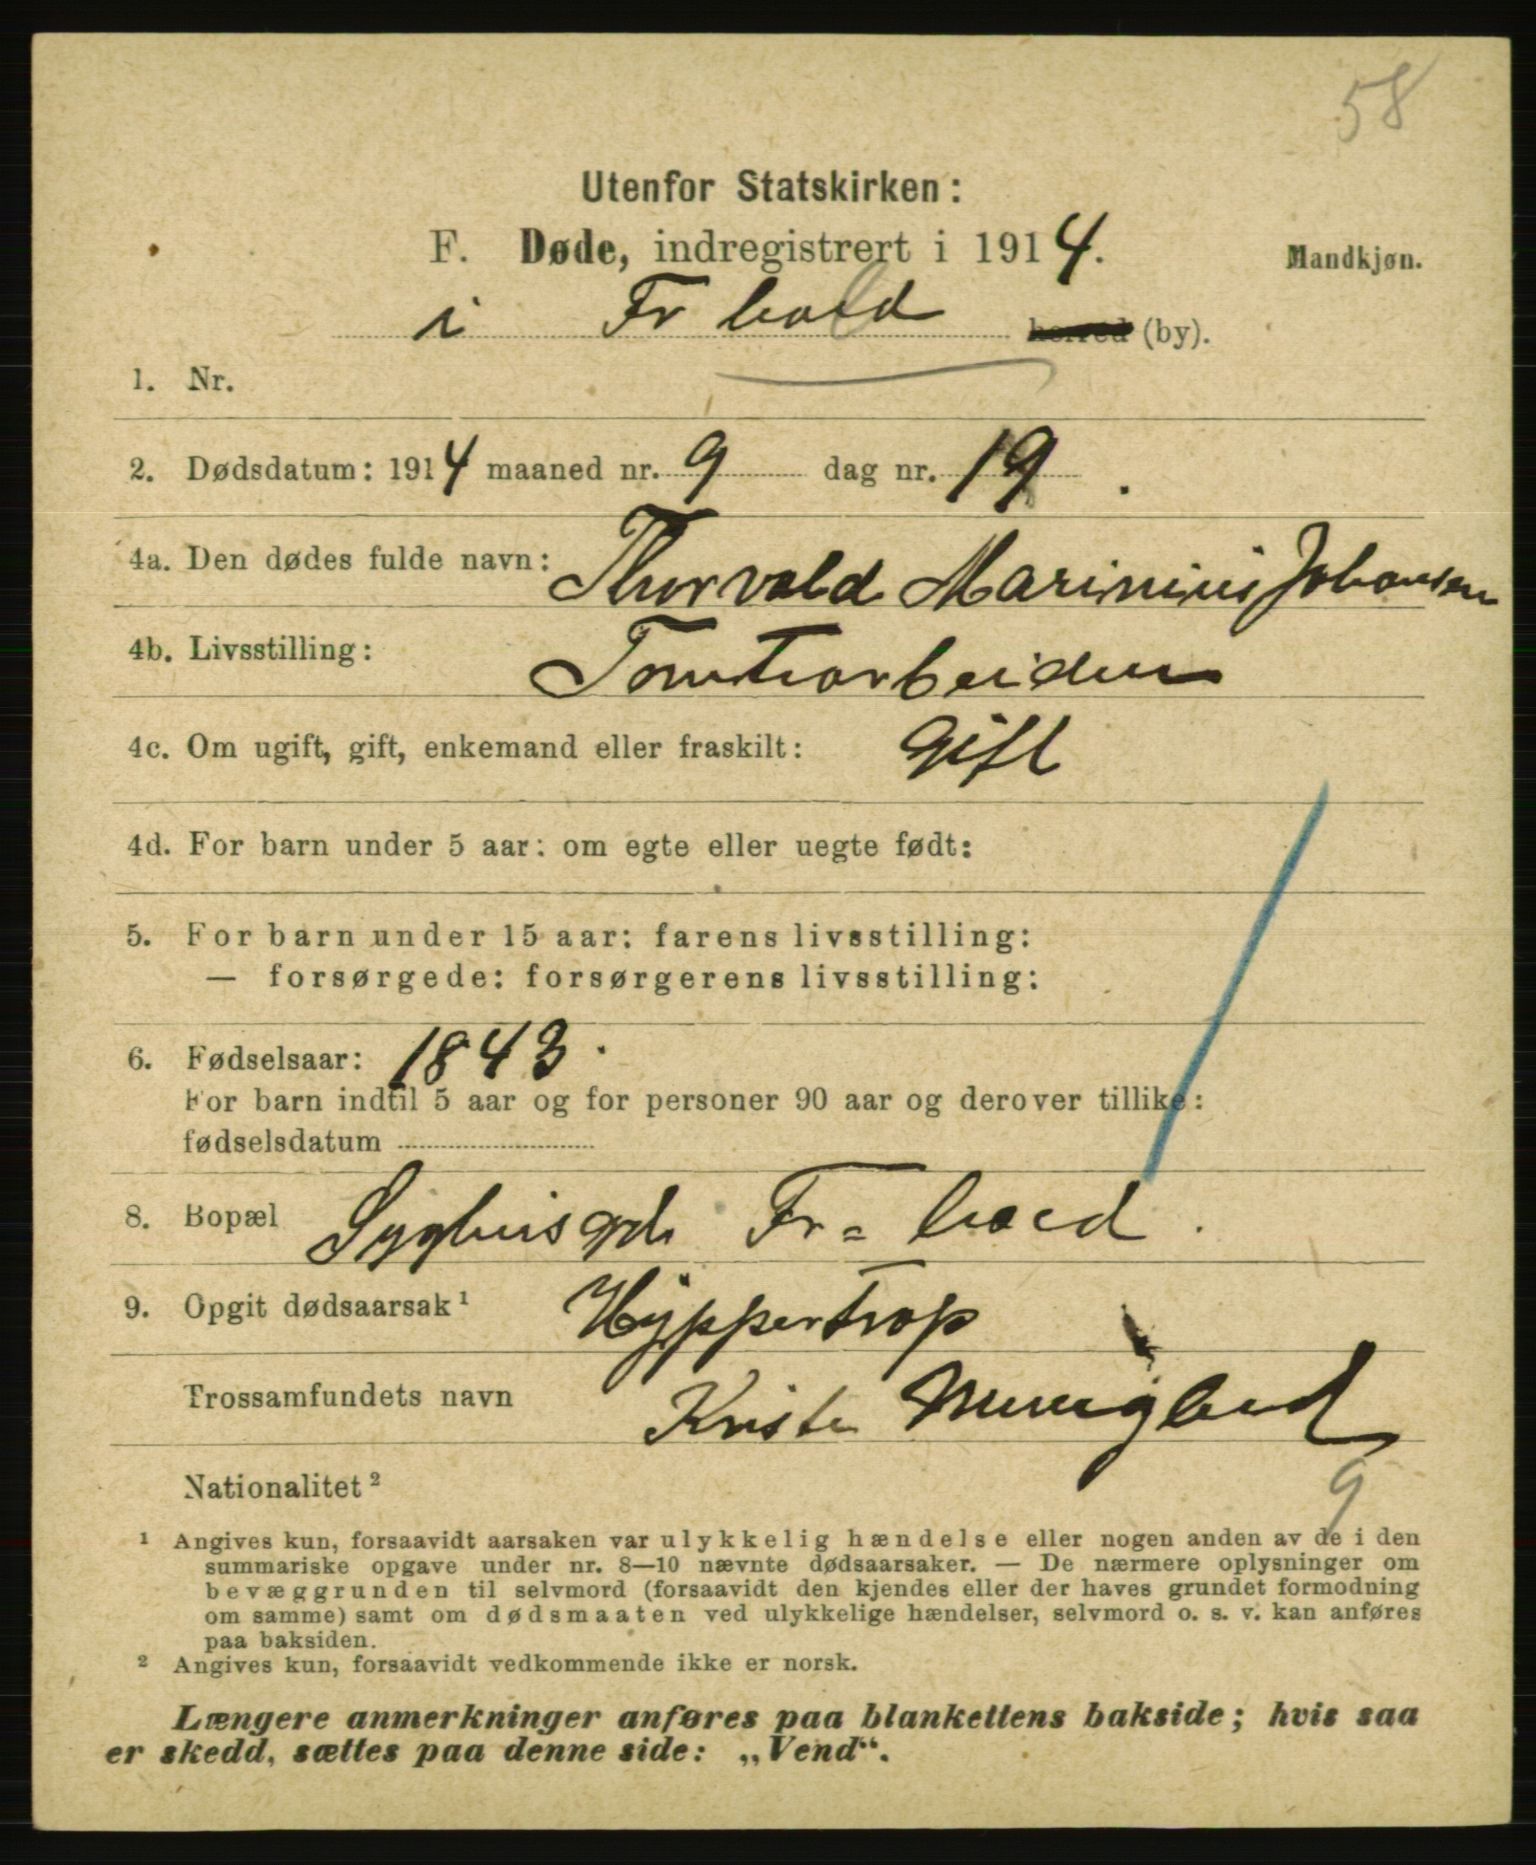 58
Utenfor Statskirken:
F. Døde, indregistrert i 1914.
Mandkjøn.
i Fr hald herred (by).
1. Nr.
2. Dødsdatum: 1914 maaned nr. 9 dag nr. 19.
4a. Den dødes fulde navn: Thorvald Marinius Johansen
4b. Livsstilling: Tomtearbeider
4c. Om ugift, gift, enkemand eller fraskilt: Gift
4d. For barn under 5 aar: om egte eller uegte født:
5. For barn under 15 aar: farens livsstilling:
— forsørgede: forsørgerens livsstilling:
6. Fødselsaar: 1843.
For barn indtil 5 aar og for personer 90 aar og derover tillike:
fødselsdatum
8. Bopæl Fr=hald.
9. Opgit dødsaarsak¹ Hyppertrop
Trossamfundets navn Kriste Menighed
9
Nationalitet²
¹ Angives kun, forsaavidt aarsaken var ulykkelig hændelse eller nogen anden av de i den
summariske opgave under nr. 8—10 nævnte dødsaarsaker. — De nærmere oplysninger om
bevæggrunden til selvmord (forsaavidt den kjendes eller der haves grundet formodning
om samme) samt om dødsmaaten ved ulykkelige hændelser, selvmord o. s. v. kan anføres
paa baksiden.
² Angives kun, forsaavidt vedkommende ikke er norsk.
Længere anmerkninger anføres paa blankettens bakside; hvis saa
er skedd, sættes paa denne side: „Vend“.